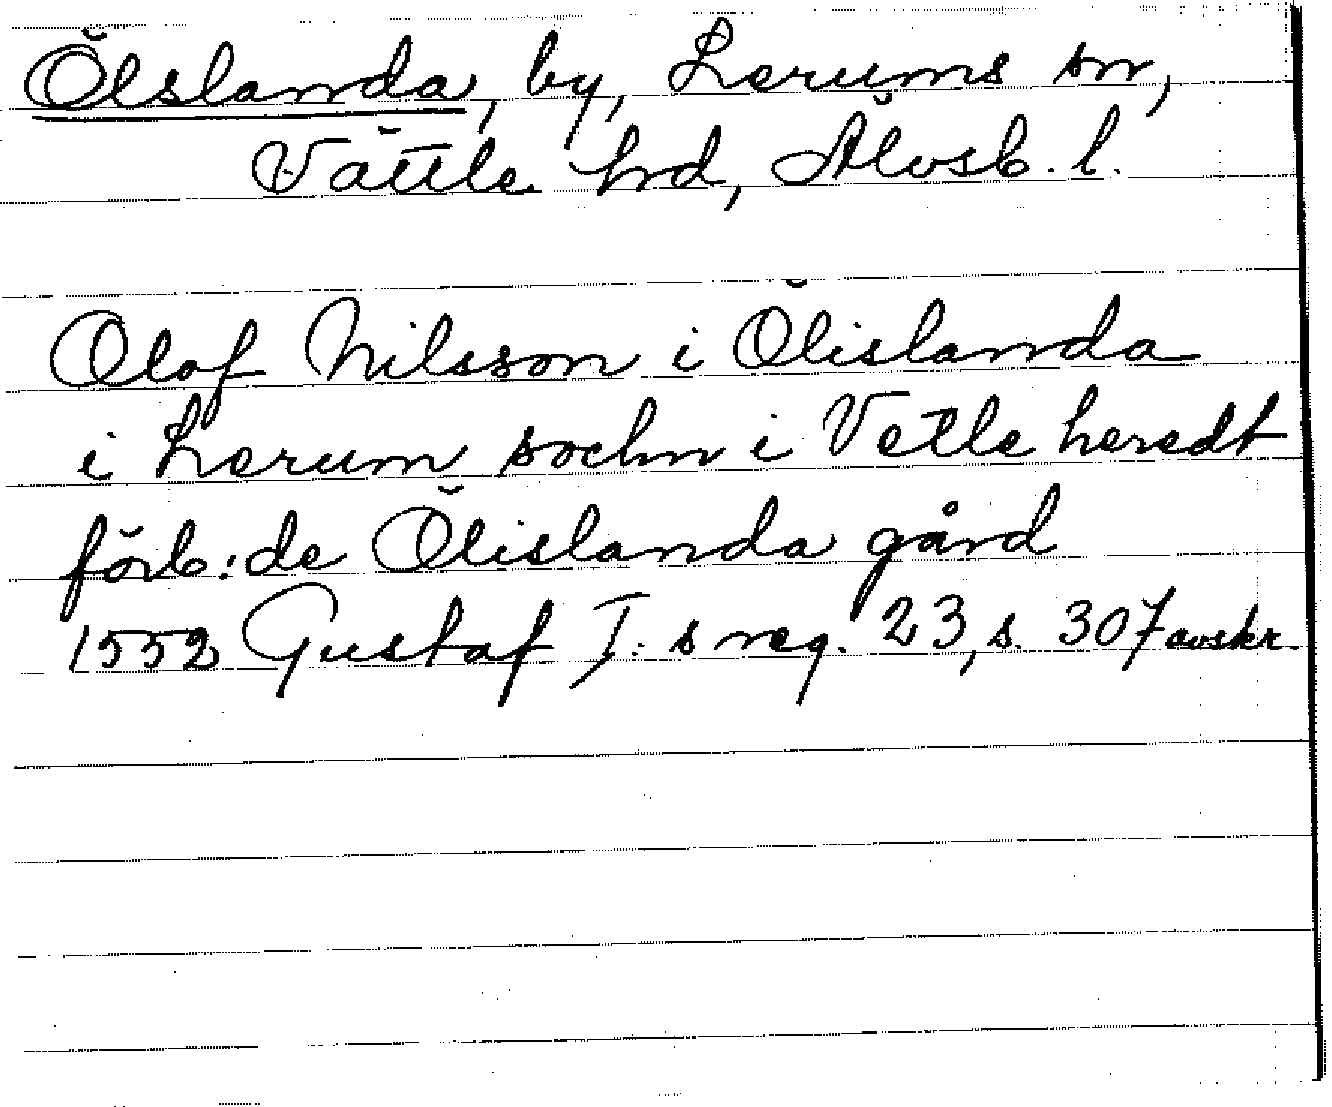 Ölslanda, by, Lerums sn,
Vättle hrd, Älvsb. l.
Olof Nilsson i Ölislanda
i Lerum sochn i Vetle heredt
förb:de Ölislanda gård
1552 Gustaf I:s reg. 23, s. 307 avskr.